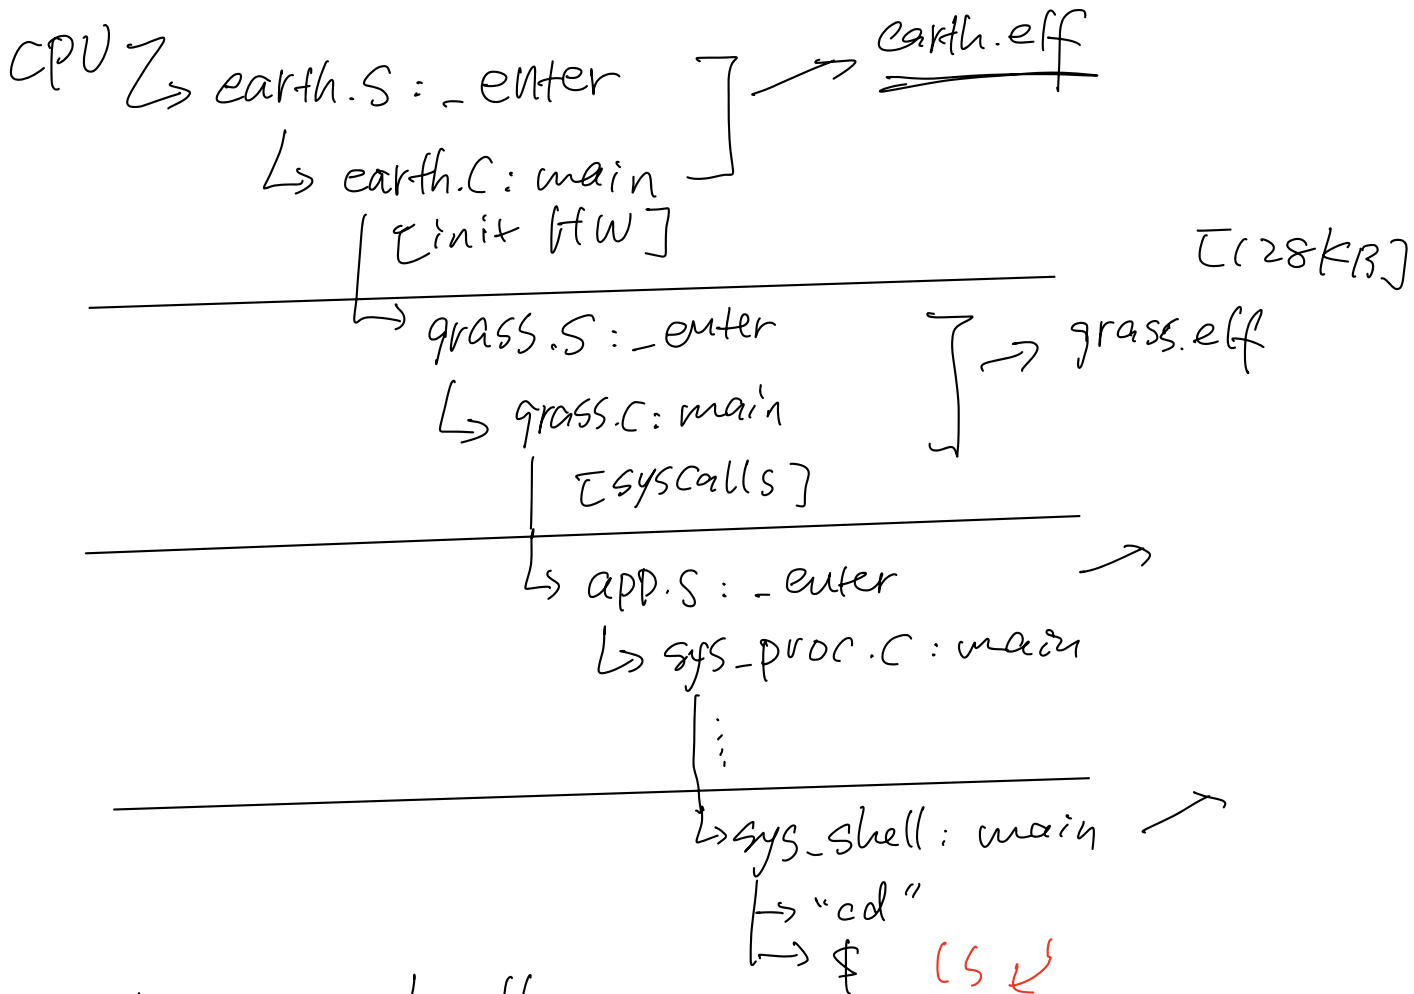 CPU → earth.S : _enter ] → earth.eff
↳ earth.C : main
[init HW]
[128KB]
↳ grass.S : _enter ] → grass.eff
↳ grass.C : main
[syscalls]
↳ app.S : _enter →
↳ sys_proc.C : main
⋮
↳ sys_shell : main →
→ "cd"
→ $ ls ↙